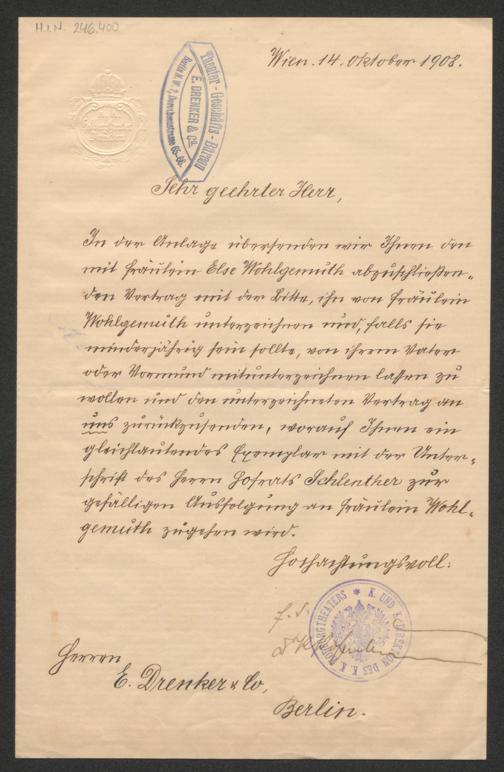 H.I.N. 246.400
Wien. 14. Oktober 1908.
Theater-Geschäfts-Bureau
E. DRENKER & Co.
Berlin N.W. 7,
Sehr geehrter Herr,
In der Anlage übersenden wir Ihnen den
mit Fräulein Else Wohlgemuth abzuschließen-
den Vertrag mit der Bitte, ihn von Fräulein
Wohlgemuth unterzeichnen und, falls sie
minderjährig sein sollte, von ihrem Vater
oder Vormund mitunterzeichnen lassen zu
wollen und den unterzeichneten Vertrag an
uns zurückzusenden, worauf Ihnen ein
gleichlautendes Exemplar mit der Unter-
schrift des Herrn Hofrats Schlenther zur
gefälligen Ausfolgung an Fräulein Wohl-
gemuth zugehen wird.
Hochachtungsvoll:
DES K. K. HOFBURGTHEATERS * K. UND K.
Herrn
E. Drenker & Co,
Berlin.